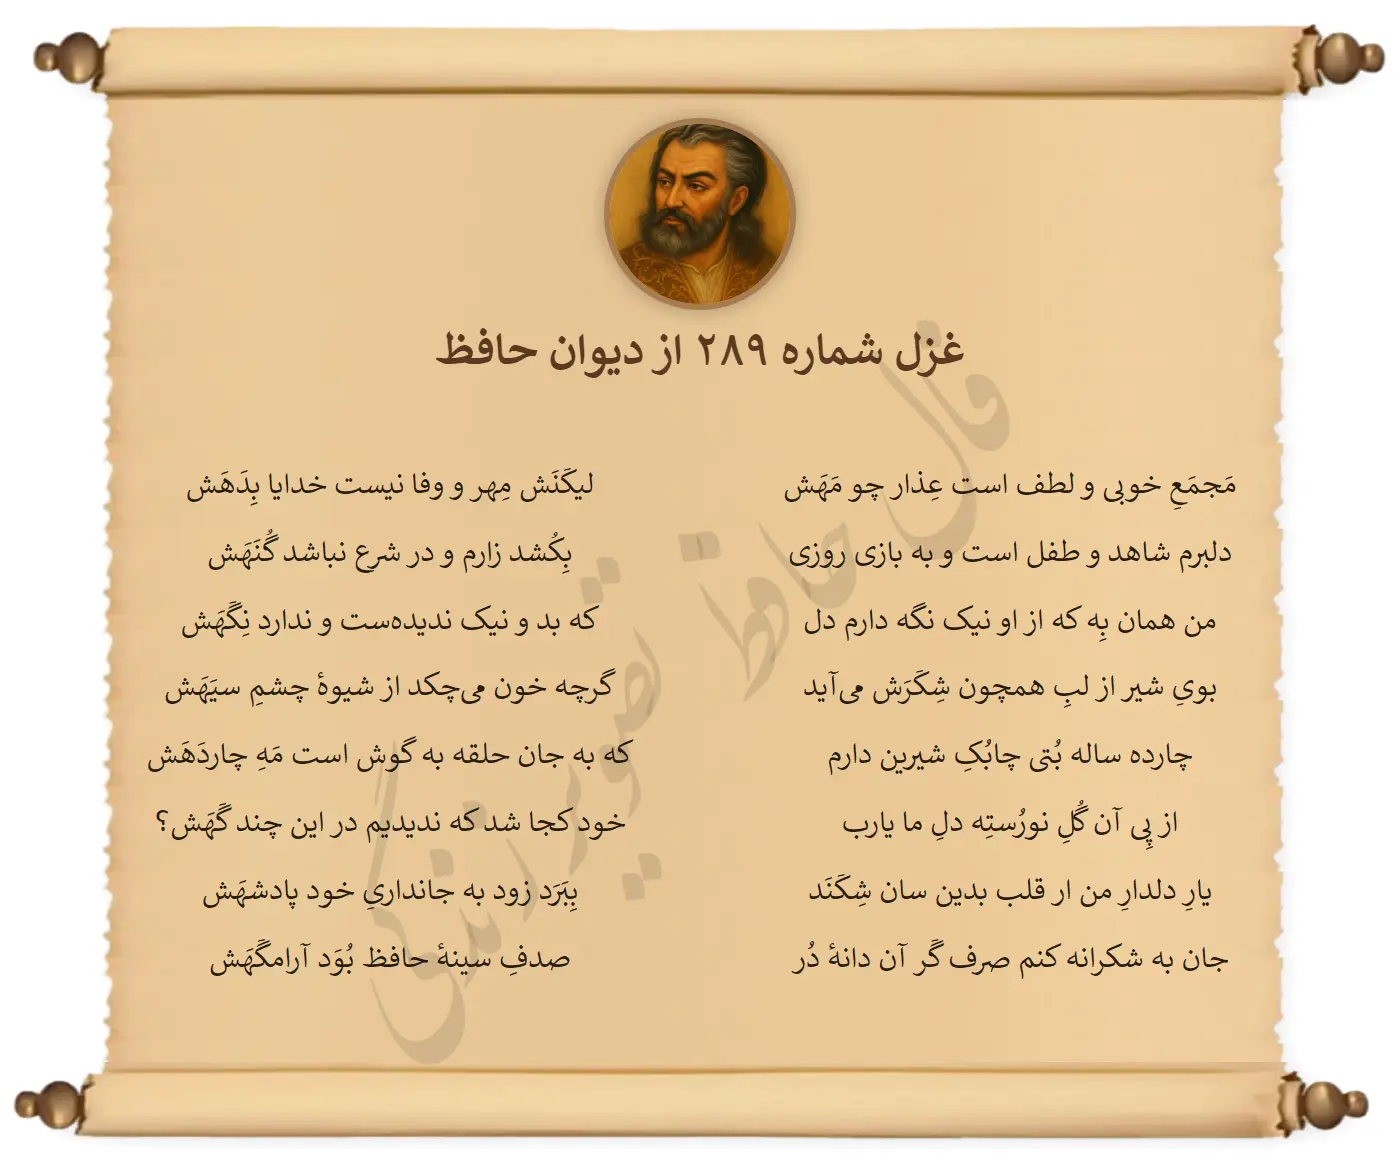 غزل شماره ۲۸۹ از دیوان حافظ
مَجمَعِ خوبی و لطف است عِذار چو مَهَش
لیکَنَش مِهر و وفا نیست خدایا بِدَهَش
دلبرم شاهد و طفل است و به بازی روزی
بِکُشد زارم و در شرع نباشد گُنَهَش
من همان بِه که از او نیک نگه دارم دل
که بد و نیک ندیده‌ست و ندارد نِگَهَش
بویِ شیر از لبِ همچون شِکَرَش می‌آید
گرچه خون می‌چکد از شیوهٔ چشمِ سیَهَش
چارده ساله بُتی چابُکِ شیرین دارم
که به جان حلقه به گوش است مَهِ چاردَهَش
از پِی آن گُلِ نورُستِه دلِ ما یارب
خود کجا شد که ندیدیم در این چند گَهَش؟
یارِ دلدارِ من ار قلب بدین سان شِکَنَد
بِبَرَد زود به جانداریِ خود پادشهَش
جان به شکرانه کنم صرف گَر آن دانهٔ دُر
صدفِ سینهٔ حافظ بُوَد آرامگَهَش
فال حافظ تصویر زندگی